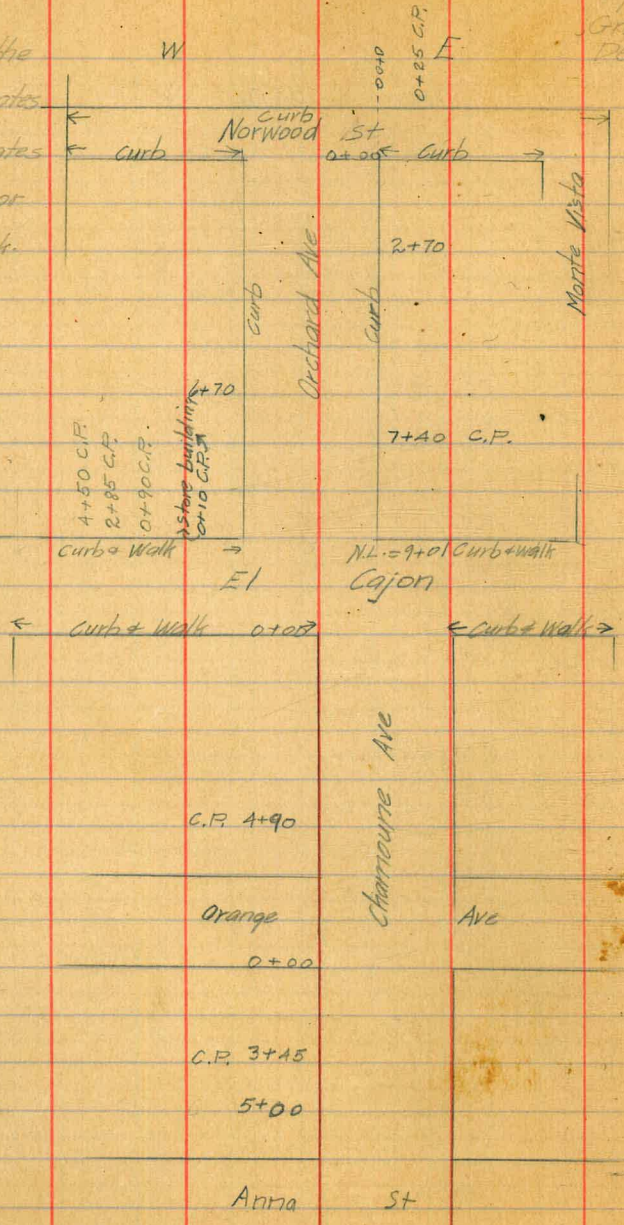 W E
0+00
0+25 C.P.
the
Curb
Norwood St
Curb 0+00 Curb
2+70
Monte Vista
Curb
Orchard Ave
Curb
6+70
7+40 C.P.
4+50 C.P.
2+85 C.P.
0+90 C.P.
store building
0+10 C.P.
Curb & Walk N.L.=9+01 Curb & Walk
El Cajon
Curb & Walk 0+00 Curb & Walk
Chamoune Ave
C.P. 4+90
Orange Ave
0+00
C.P. 3+45
5+00
Anna St